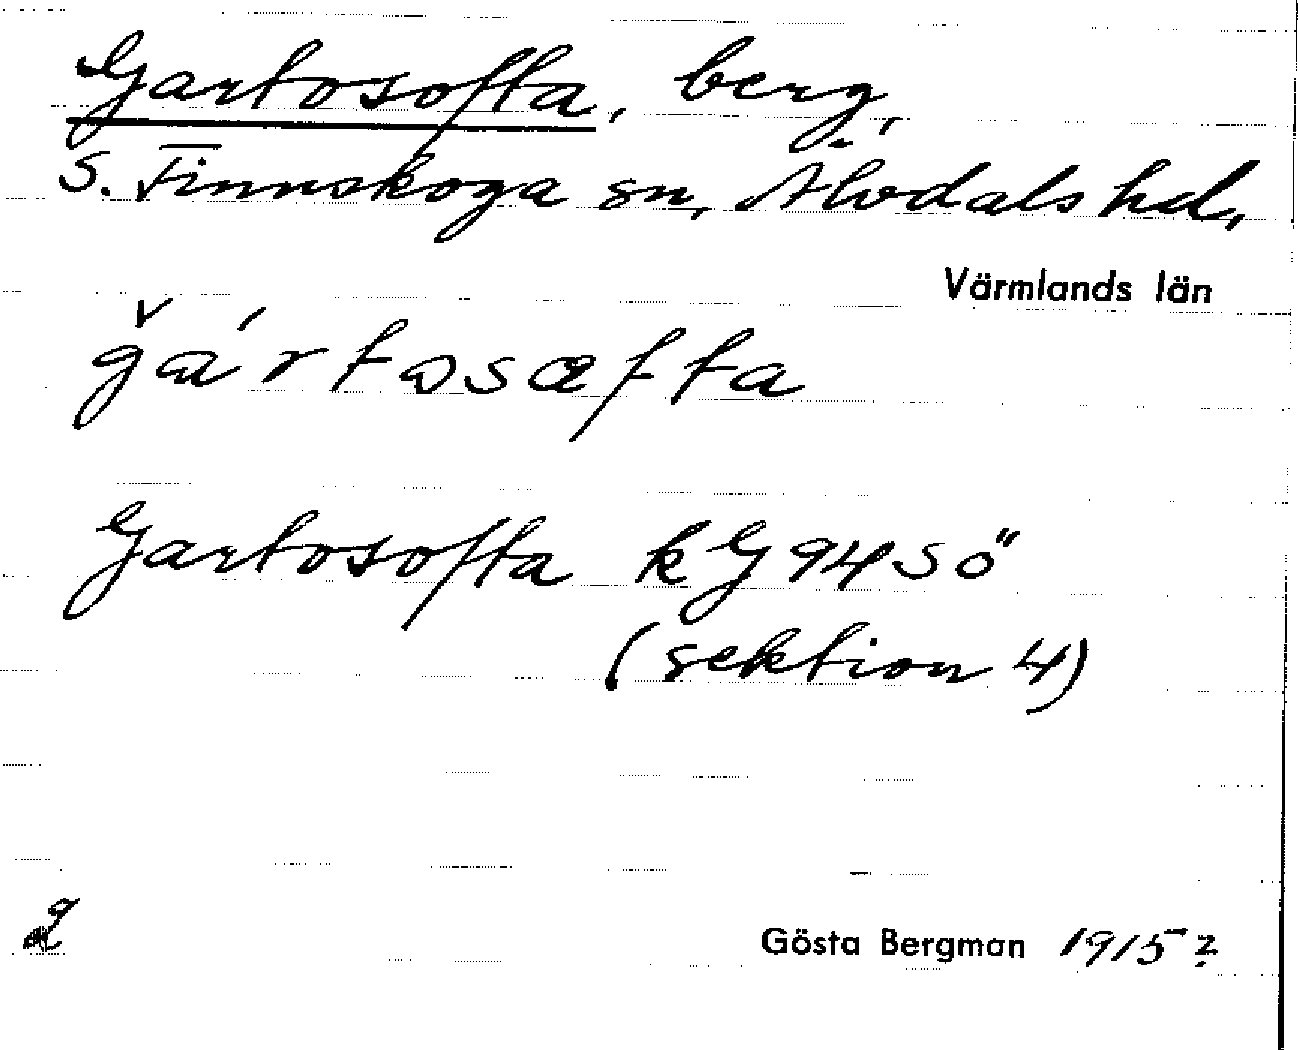 Gartosofta, berg,
S. Finnskoga sn, Älvdals hd,
Värmlands län
gártosæfta
Gartosofta kG 94 SÖ
(sektion 4)
Gösta Bergman 1915?